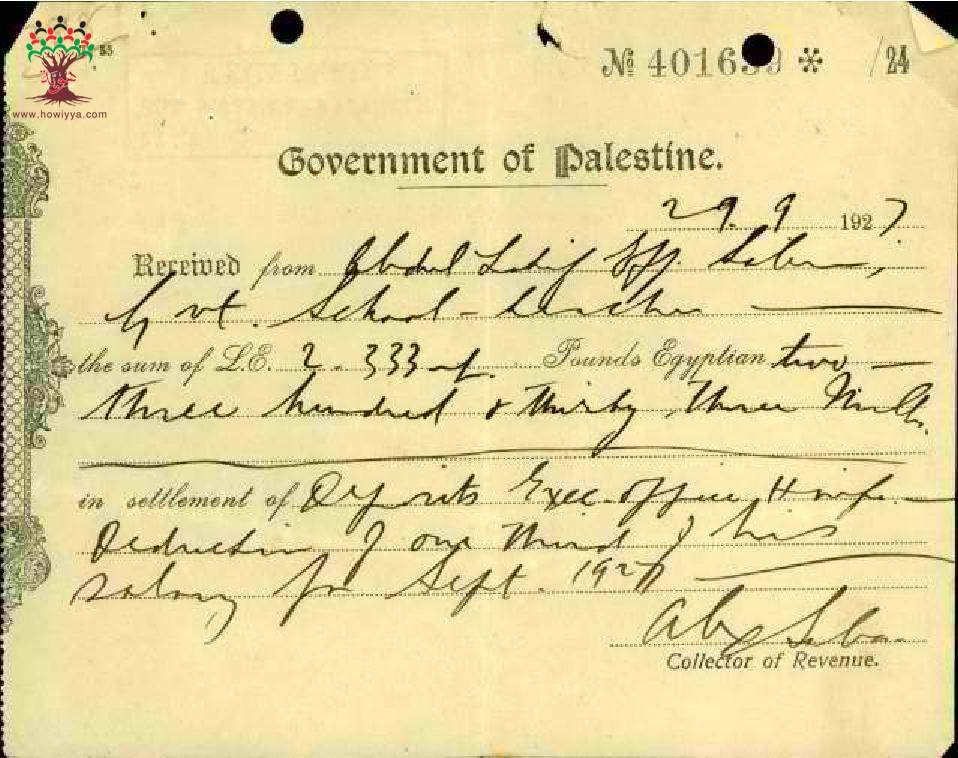 55
№ 401699 * /24
www.howiyya.com
RECEIPT
Government of Palestine.
29.9 1927
Received from Abdul Latif Eff. Sabri,
Gvt. School-teacher
the sum of L.E. 2.333 Pounds Egyptian two
three hundred & thirty three Mills.
in settlement of Deposits Exec. office, Haifa
Deduction of one third of his
salary for Sept. 1927
Collector of Revenue.